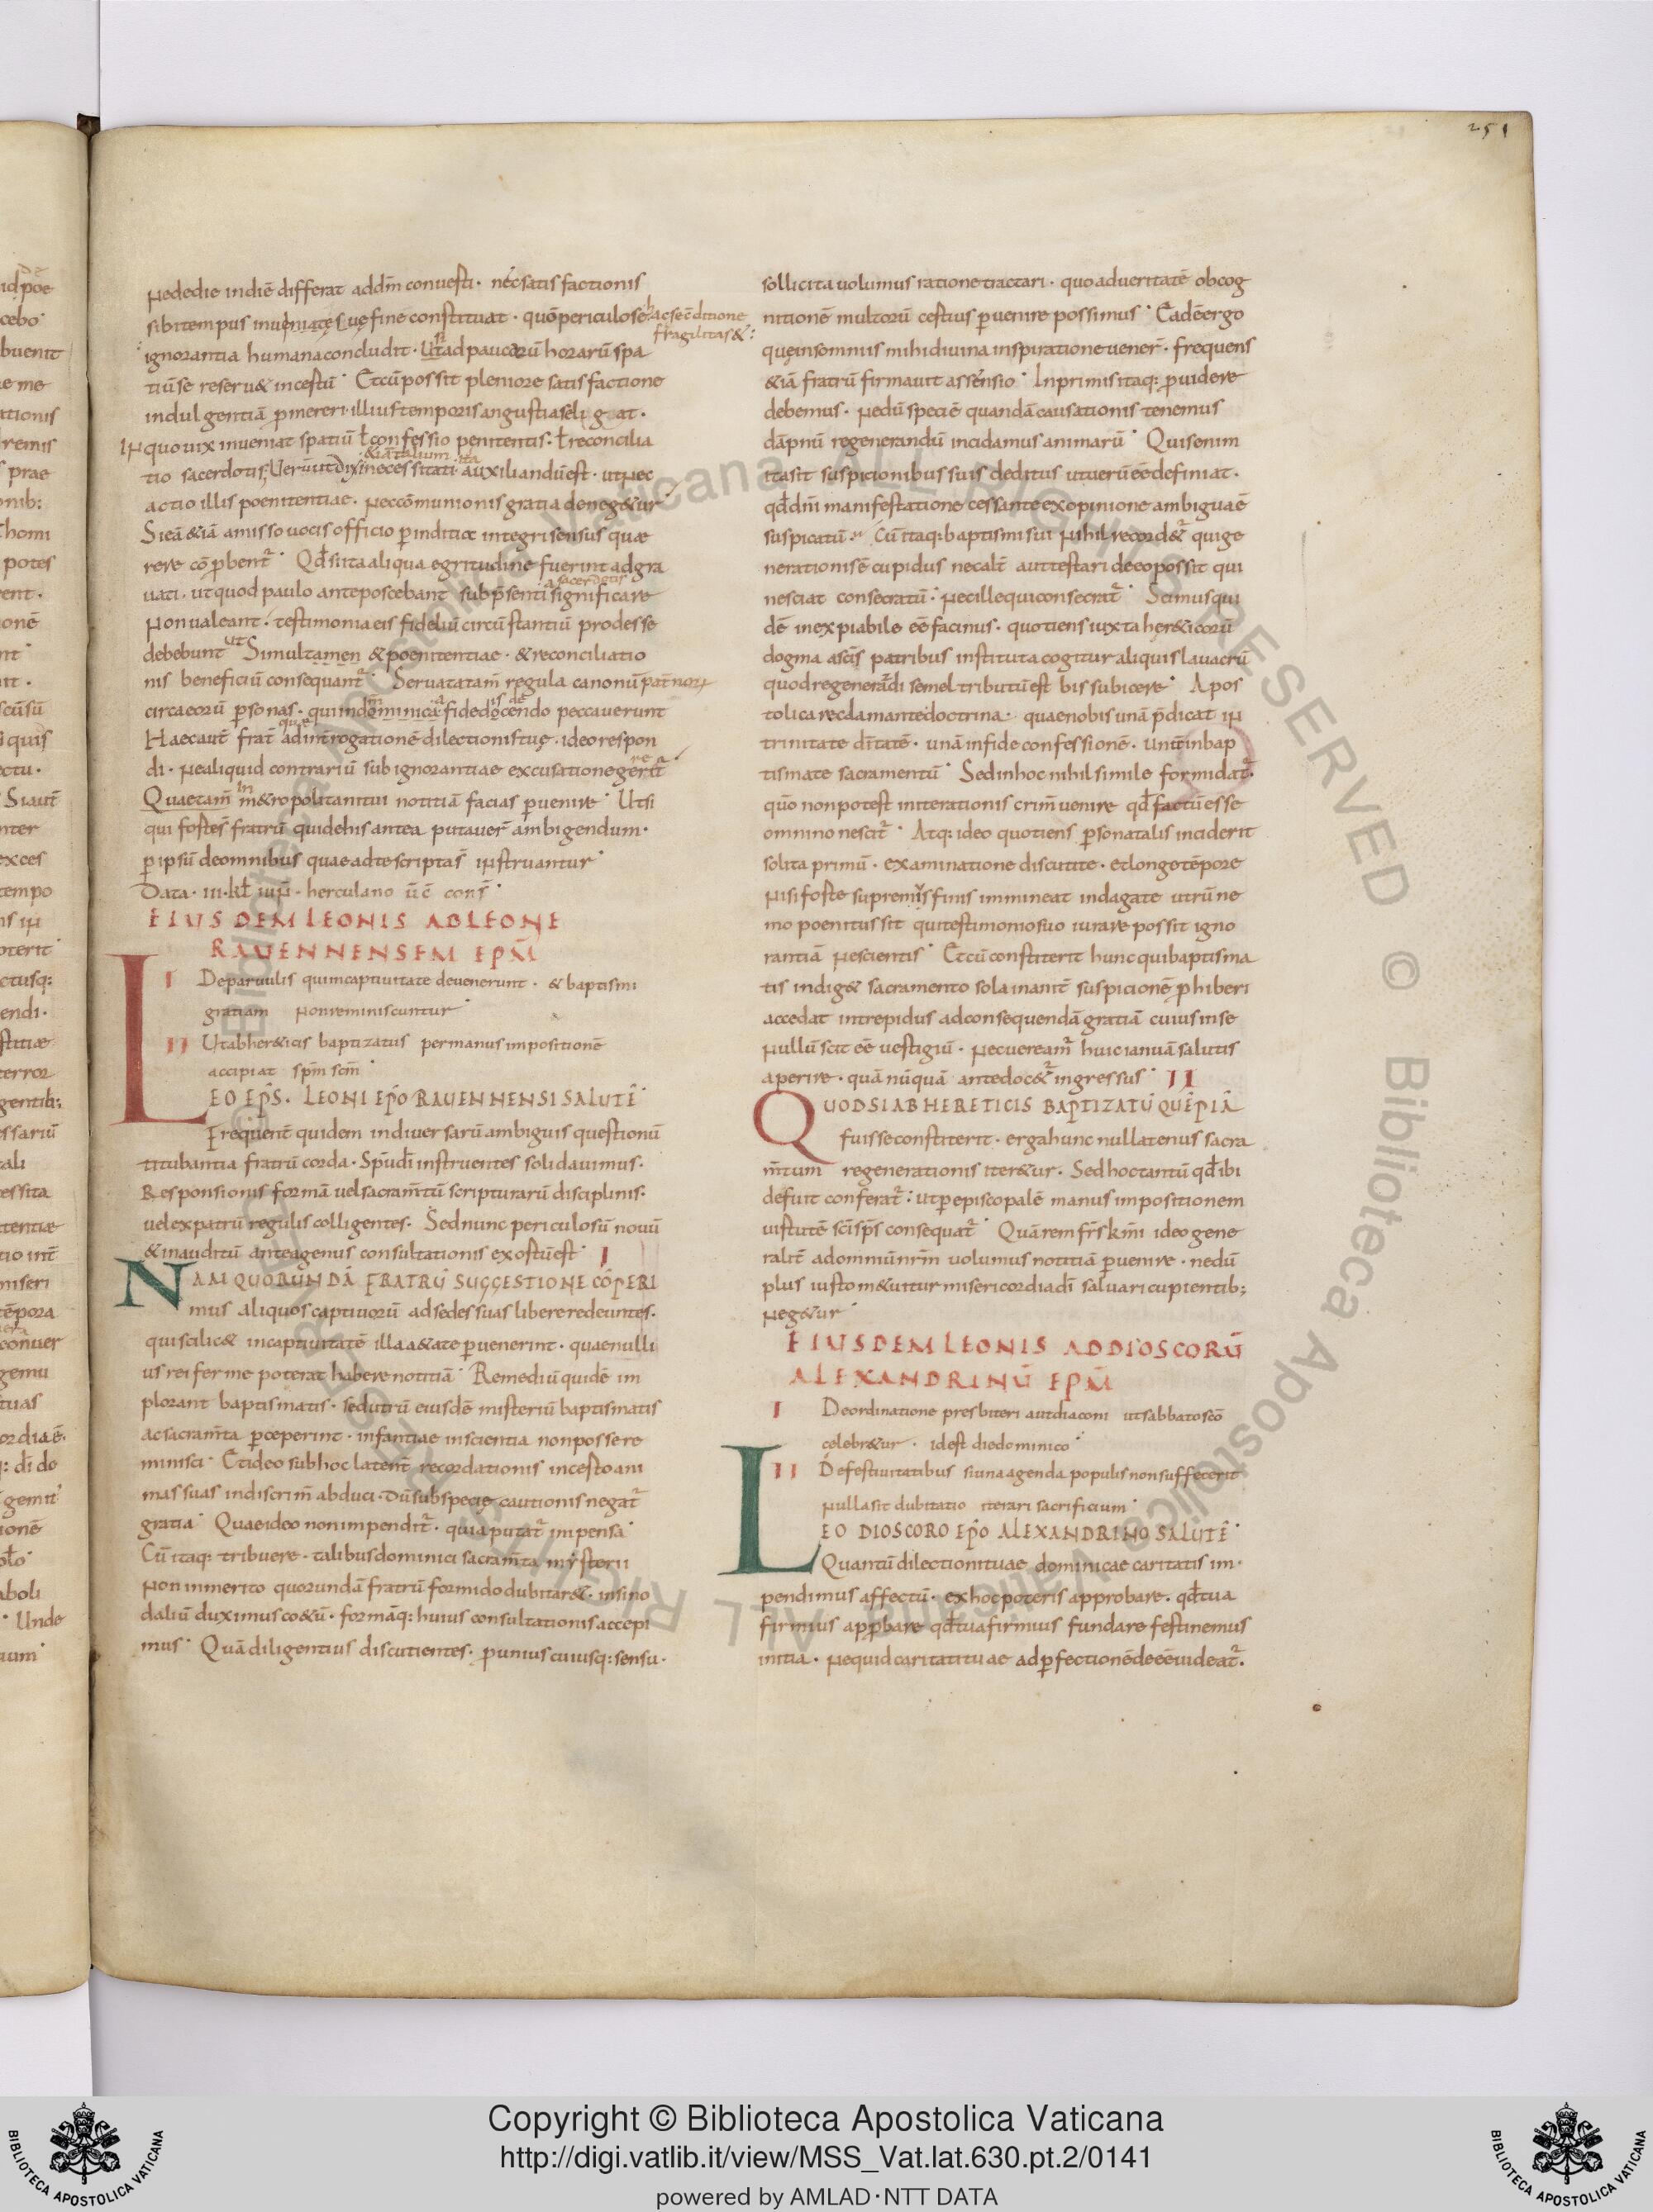 251
Nededie indiē differat addm̄ conuerti · nec satis factionis
sibi tempus in ueniat suę fine constituat · quō periculose
hac se cōditione fragilitas &
ignorantia humana concludit · Ut ad paucorū horarū spa
tiū se reseru& incertū · Et cū possit pleniore satis factione
indulgentiā ꝑmereri · illius temporis angustias eligat ·
IN quo uix inueniat spatiū ł confessio penitentis · ł reconcilia
tio sacerdotis, Uerū ut dixi &iā talium necessitati ita auxiliandū est · ut nec
actio illis poenitentiae · nec cōmunionis gratia deneg&ur
Si eā &iā amisso uocis officio ꝑ inditia integri sensus quae
rere cōꝓbent᷒ · Qd̄ si ita aliqua egritudine fuerint adgra
uati · ut quod paulo ante poscebant sub p̄senti a sacerdotis significare
Non ualeant · testimonia eis fideliū circū stantiū prodesse
debebunt ut Simul tamen & poenitentiae · & reconciliatio
nis beneficiū consequant᷒ · Seruata tam̄ regula canonū paternorū
circa eorū ꝑsonas · qui in dominica fide docendo peccauerunt
Haec aut̄ frat̄ quae ad int̄rogationē dilectionis tuę · ideo respon
di · Ne aliquid contrariū sub ignorantiae excusatione gererit
Quae tam̄ in m&ropolitani tui notitiā facias ꝑuenire · Ut si
qui fortēs fratrū qui de his antea putauer̄ ambigendum ·
ꝑ ipsū de omnibus quae ad te scripta s̄ instruantur
Data · III · kł iuń · herculano u̅c̅ cons̄ ·
EIUSDEM LEONIS AD LEONE
RAUENNENSEM EPM̄
I De paruulis qui in captiuitate deuenerunt · & baptismi
gratiam Non reminiscuntur
II Ut ab her&icis baptizatus per manus impositionē
accipiat spm̄ scm̄
LEO EPS̄ · LEONI EPŌ RAUENNENSI SALUTĒ ·
Frequent̄ quidem in diuersarū ambiguis questionū
titubantia fratrū corda · Spū dī instruentes solidauimus ·
Responsionis formā uel sacram̄tū scripturarū disciplinis ·
uel ex patrū regulis colligentes · Sed nunc periculosū nouū
& inauditū antea genus consultationis exortū est · I
NAM QUORUNDĀ FRATRŪ SUGGESTIONE CŌPERI
mus aliquos captiuorū ad sedes suas libere redeuntes ·
qui scilic& in captiuitatē illa a&ate ꝑuenerint · quae nulli
us rei ferme poterat habere notitiā · Remediū quidē im
plorant baptismatis · sed utrū eiusdē misteriū baptismatis
ac sacram̄ta ꝑceperint · infantiae inscientia non posse re
minisci · Et ideo sub hoc latent̄ recordationis incerto ani
mas suas in discrim̄ abduci · Dū sub specie cautionis negat᷒
gratia · Quae ideo non impendit᷒ · quia putat᷒ impensa ·
Cū itaq: tribuere · talibus dominici sacram̄ta mysterii
Non inmerito quorundā fratrū formido dubitar& · in sino
daliū duximus co&ū · formāq: huius consultationis accepi
mus · Quā diligentius discutientes · ꝓ unius cuiusq: sensu ·
sollicita uolumus ratione tractari · quo ad ueritatē ob cog
nitionē multorū certius ꝑuenire possimus · Eadē ergo
quę in somnis mihi diuina inspiratione uener̄ · frequens
&iā fratrū firmauit assensio · Inprimis itaq: ꝓuidere
debemus · Ne dū speciē quandā causationis tenemus
dāpnū regenerandū incidamus animarū · Quis enim
ita sit suspicionibus suis deditus ut uerū eē definiat ·
qd̄ dm̄ manifestatione cessante ex opinione ambigua ē
suspicatū · Cū itaq: baptismi sui Nihil record&᷒ qui ge
nerationis ē cupidus nec alt̄ aut testari de eo possit qui
nesciat consecratū · Nec ille qui consecrat᷒ · Scimus qui
dē inexpiabile eē facinus · quotiens iuxta her&icorū
dogma a scīs patribus instituta cogitur aliquis lauacrū
quod regenerādi semel tributū est bis subicere · Apos
tolica reclamante doctrina · quae nobis unā p̄dicat in
trinitate dītatē · unā in fide confessionē · Unū in bap
tismate sacramentū · Sed in hoc nihil simile formidat᷒ ·
quō non potest in iterationis crim̄ uenire qd̄ factū esse
omnino nescit᷒ · Atq: ideo quotiens ꝑsona talis inciderit
solita primū · examinatione discutite · et longe tēpore
Nisi forte supremus finis immineat indagate utrū ne
mo poenitus sit qui testimonio suo iurare possit igno
rantiā Nescientis · Et cū constiterit hunc qui baptisma
tis indig& sacramento sola inanit̄ suspicionē ꝓhiberi
accedat intrepidus ad consequendā gratiā cuius in se
Nullū scit eē uestigiū · Nec ueream᷒ huic ianuā salutis
aperire · quā nūquā ante doc&᷒ ingressus · II
QUOD SI AB HERETICIS BAPTIZATŪ QUĒPIĀ
fuisse constiterit · erga hunc nullatenus sacra
m̄tum regenerationis iter&ur · Sed hoc tantū qd̄ ibi
defuit conferat᷒ · ut ꝑ episcopalē manus impositionem
uirtutē scī sps̄ consequat᷒ · Quā rem frs̄ km̄i ideo gene
ralit̄ ad omniū nrm̄ uolumus notitiā ꝑuenire · ne dū
plus iusto m&uitur misericordia dī saluari cupientib;
Neg&ur ·
EIUSDEM LEONIS AD DIOSCORŪ
ALEXANDRINŪ EPM̄
I De ordinatione presbiteri aut diaconi ut sabbato scō
celebr&ur · id est die dominico ·
II De festiuitatibus si una agenda populis non suffecerit
Nulla sit dubitatio iterari sacrificium ·
LEO DIOSCORO EPŌ ALEXANDRINO SALUTĒ ·
Quantū dilectioni tuae dominicae caritatis im ·
pendimus affectū · ex hoc poteris approbare · qd̄ tua
firmius apꝓbare qd̄ tua firmius fundare festinemus
initia · Ne quid caritati tuae ad ꝑfectionē deeē uideat᷒ ·
Copyright © Biblioteca Apostolica Vaticana
http://digi.vatlib.it/view/MSS_Vat.lat.630.pt.2/0141
powered by AMLAD·NTT DATA
BIBLIOTECA APOSTOLICA VATICANA
BIBLIOTECA APOSTOLICA VATICANA